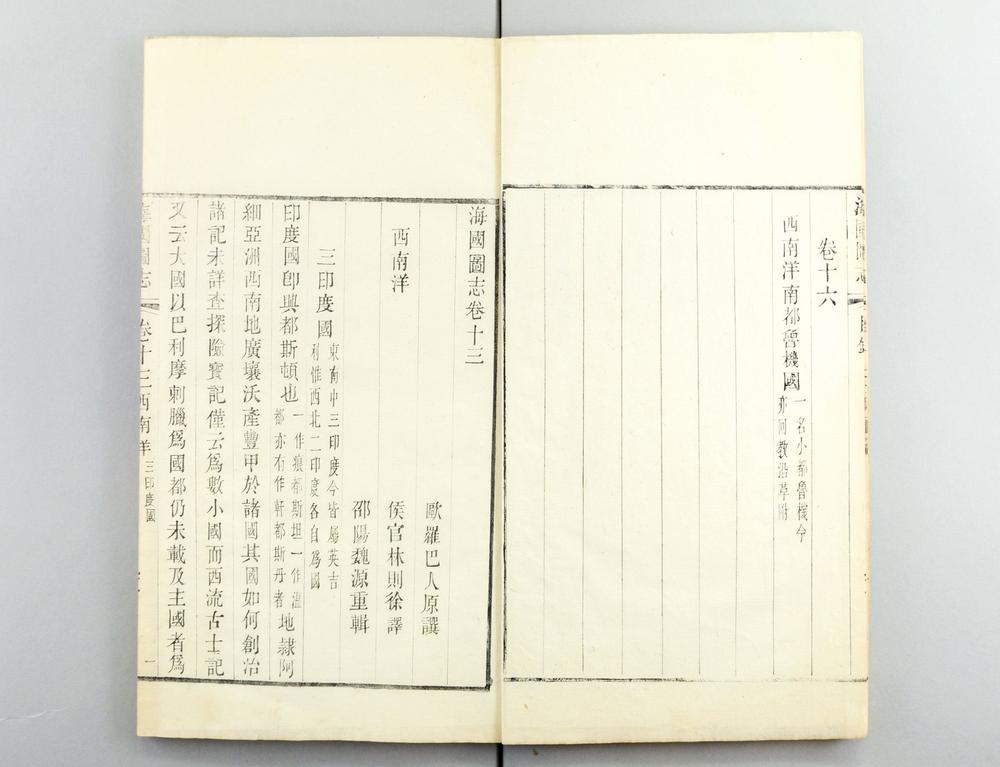 卷十六
西南洋南都魯機國一名小都魯機今
亦回教沿革附
海國圖志卷十三
歐羅巴人原譔
西南洋
侯官林則徐譯
邵陽魏源重輯
三印度國東南中三印度今皆屬英吉
利惟西北二印度各自爲國
印度國卽興都斯頓也一作痕都斯坦一作溫
都亦有作軒都斯丹者地隷阿
細亞洲西南地廣壤沃產豐甲於諸國其國如何創治
諸記未詳查探險寶記僅云爲數小國而西流古士記
又云大國以巴利摩刺臘爲國都仍未載及主國者爲
海國圖志
卷十三西南洋三印度國
一